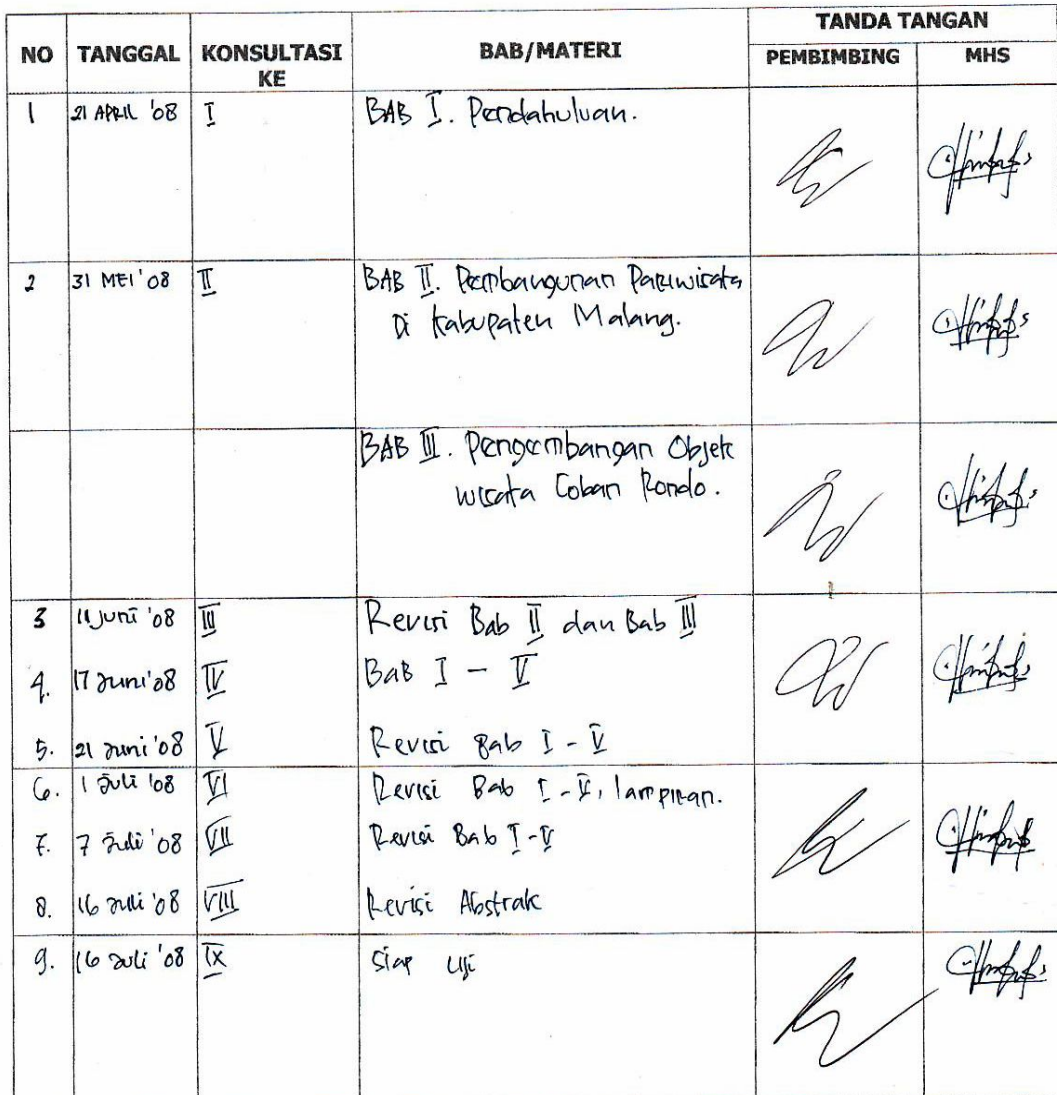 NO TANGGAL KONSULTASI KE BAB/MATERI TANDA TANGAN
PEMBIMBING MHS
1 21 APRIL '08 I BAB I. Pendahuluan.
2 31 MEI '08 II BAB II. Pembangunan Pariwisata
Di Kabupaten Malang.
BAB III. Pengembangan Objek
wisata Coban Rondo.
3 11 Juni '08 III Revisi Bab II dan Bab III
4. 17 Juni '08 IV Bab I - V
5. 21 Juni '08 V Revisi Bab I - V
6. 1 Juli '08 VI Revisi Bab I - V, lampiran.
7. 7 Juli '08 VII Revisi Bab I - V
8. 16 Juli '08 VIII Revisi Abstrak
9. 16 Juli '08 IX Siap Uji